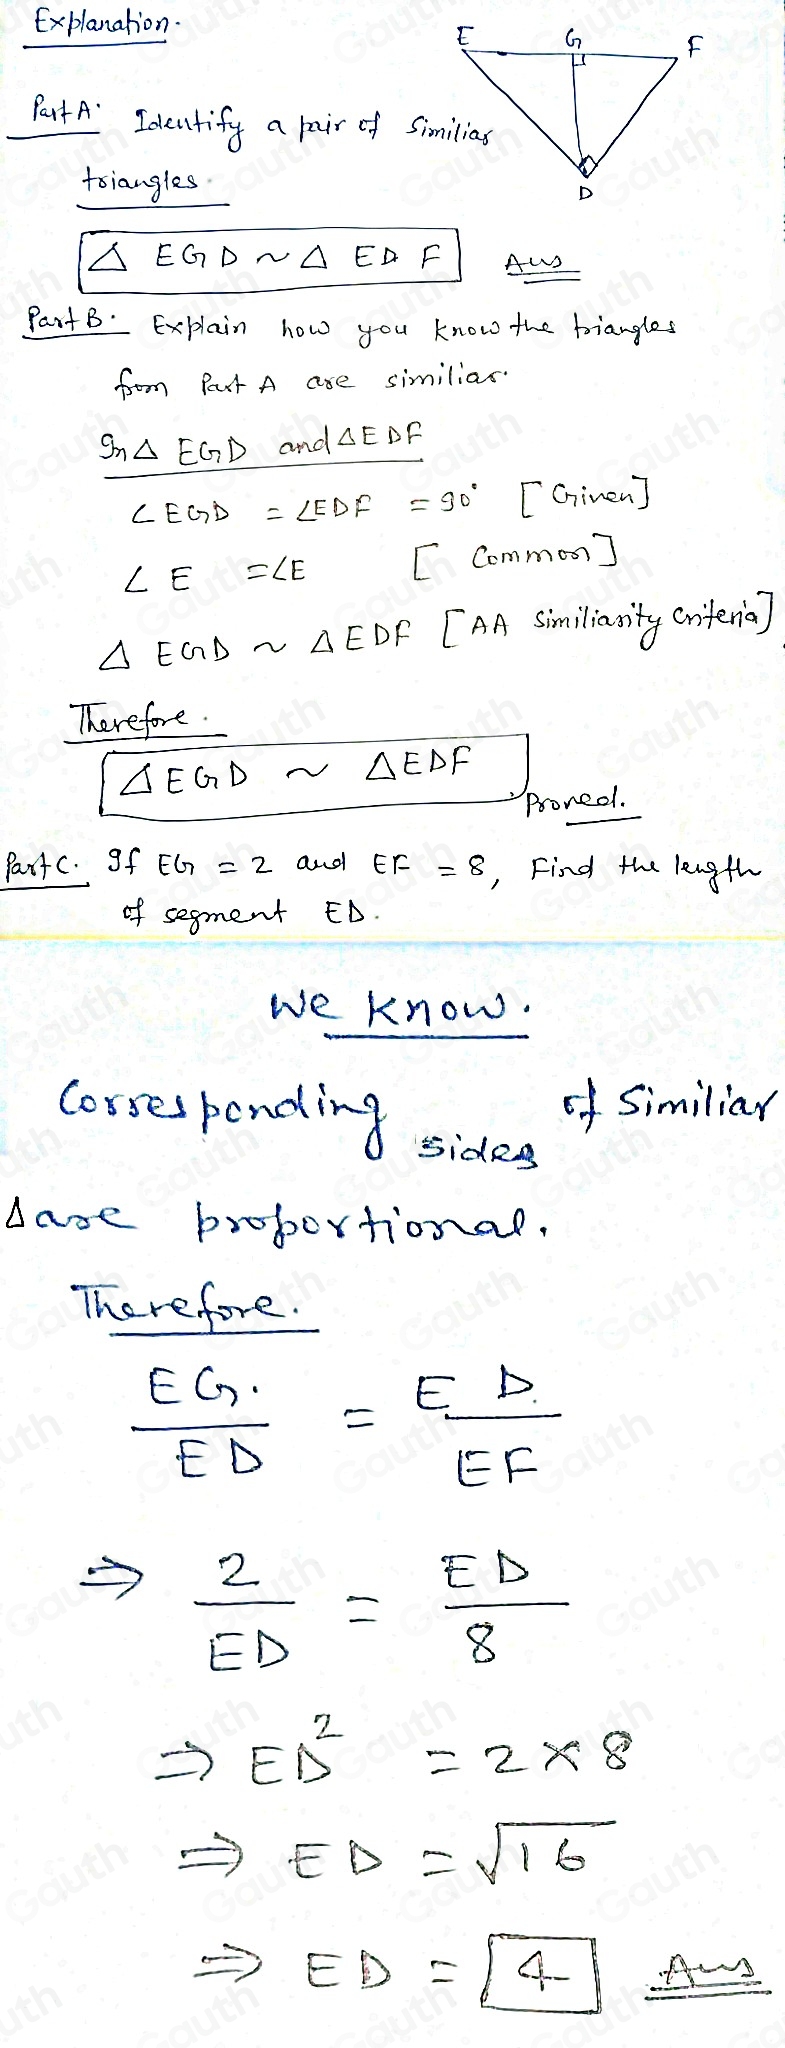 Explanation.
E G F
D
Part A. Identify a pair of Similiar
triangles.
△ EGD ~ △ EDF Ans
Part B. Explain how you know the triangles
from Part A are similiar.
In △ EGD and △EDF
∠EGD = ∠EDF = 90° [Given]
∠E = ∠E [Common]
△ EGD ~ △EDF [AA Similiarity Criteria]
Therefore.
△EGD ~ △EDF
Proved.
Part C. If EG = 2 and EF = 8, Find the length
of segment ED.
We know.
Corresponding sides of Similiar
△ are proportional.
Therefore.
EG. / ED = ED. / EF
⇒ 2 / ED = ED / 8
⇒ ED² = 2 × 8
⇒ ED = √16
⇒ ED = 4 Ans